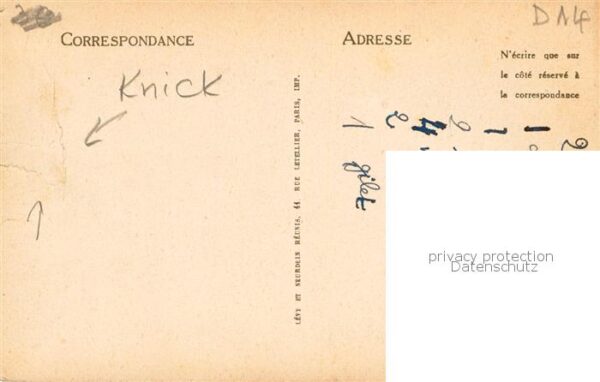 D A4
CORRESPONDANCE
ADRESSE
N'écrire que sur
le côté réservé à
la correspondance
Knick
LÉVY ET NEURDEIN RÉUNIS, 44, RUE LETELLIER, PARIS, IMP.
1 gilet
2
privacy protection
Datenschutz